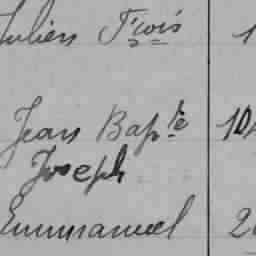 Julien Fçois 1
Jean Bapte 10
Joseph
Emmanuel 2